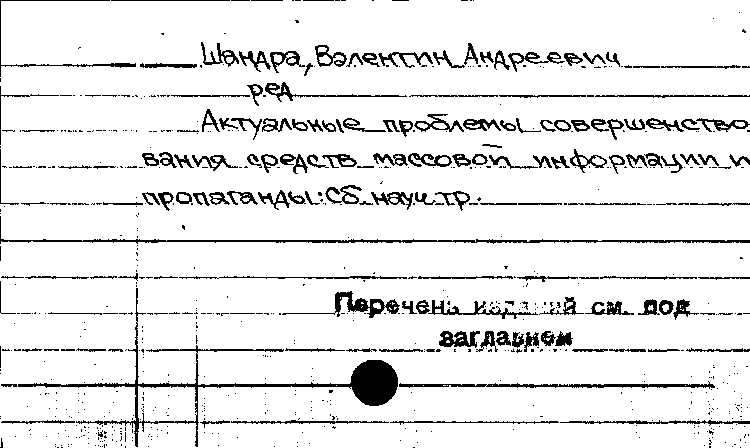 Шандра, Валентин Андреевич
ред
Актуальные проблемы совершенство
вания средств массовой информации и
пропаганды: Сб. науч. тр.
Перечень изданий см. под
заглавием